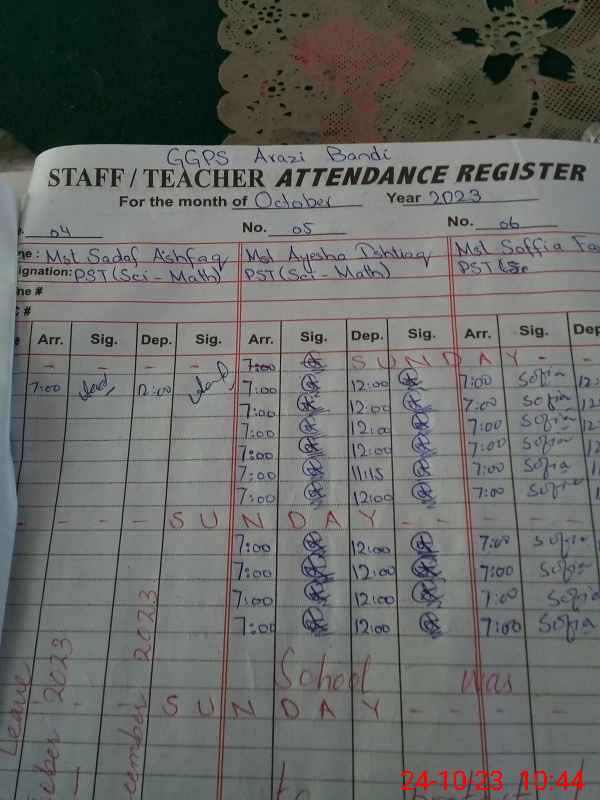 GGPS Arazi Bandi
STAFF / TEACHER ATTENDANCE REGISTER
For the month of October Year 2023
04 No. 05 No. 06
me: Mst Sadaf Ashfaq Mst Ayesha Ishtiaq Mst Soffia
signation: PST (Sci - Math) PST (Sci - Math) PST
ne #
C #
Arr. Sig. Dep. Sig. Arr. Sig. Dep. Sig. Arr. Sig. Dep
- - - - - 7:00 S U N D A Y - -
7:00 12:00 7:00 12:00 7:00 Sofia 12:
7:00 12:00 7:00 Sofia 12
7:00 12:00 7:00 Sofia 12
7:00 12:00 7:00 Sofia 12
7:00 11:15 7:00 Sofia 1
7:00 12:00 7:00 Sofia 12
- - - - S U N D A Y - - - - -
7:00 12:00 7:00 Sofia
7:00 12:00 7:00 Sofia
7:00 12:00 7:00 Sofia
7:00 12:00 7:00 Sofia
School was
S U N D A Y - - - - -
Leave
2023
2023
24-10/23 10:44